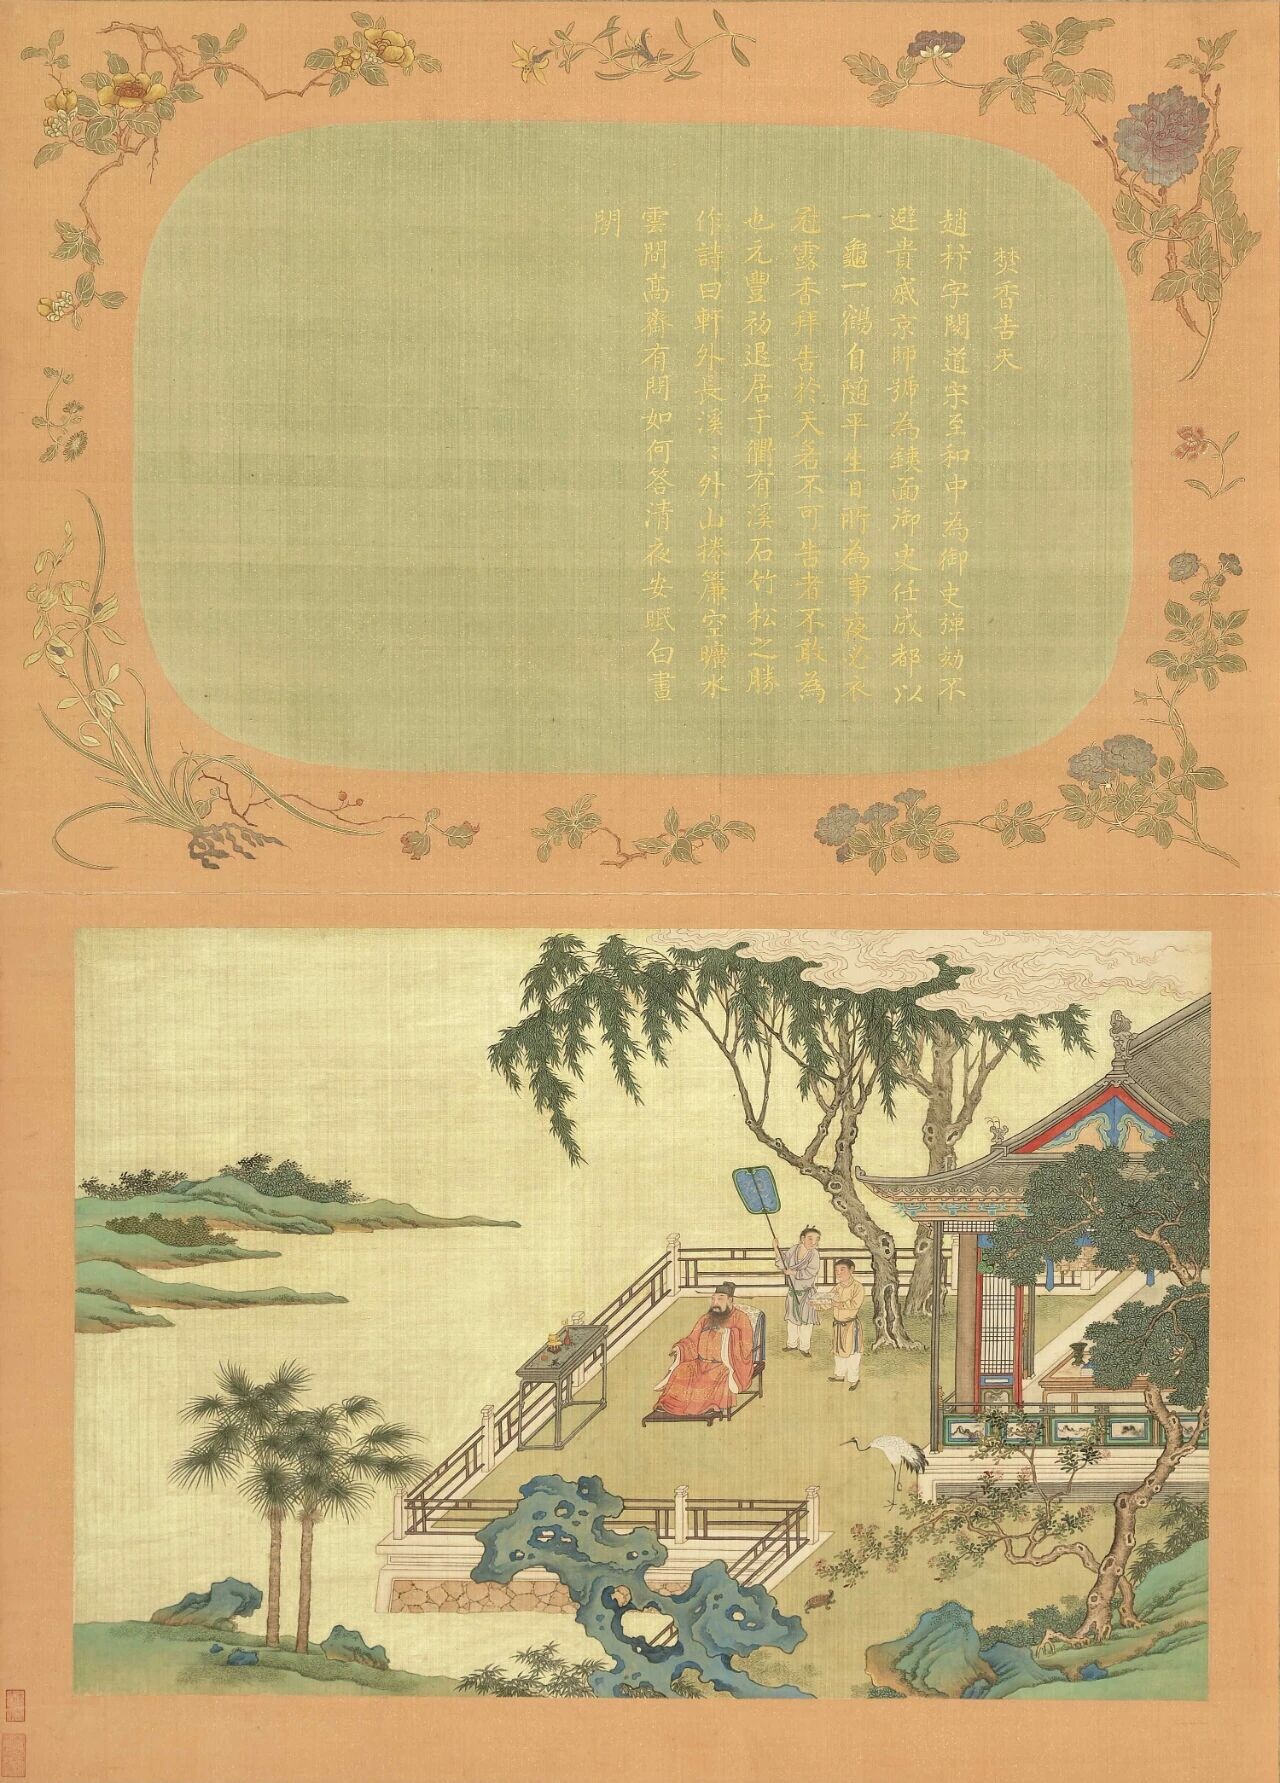 焚香告天
趙抃字閱道宋至和中為御史彈劾不
避貴戚京師號為鐵面御史任成都以
一龜一鶴自隨平生日所為事夜必衣
冠露香拜告於天若不可告者不敢為
也元豐初退居于衢有溪石竹松之勝
作詩曰軒外長溪〻外山捲簾空曠水
雲間高齋有問如何答清夜安眠白晝
閒